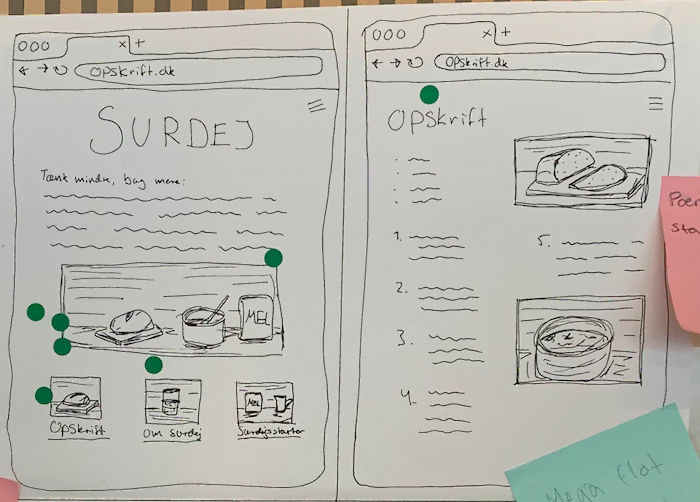 OOO x +
Opskrift.dk
SURDEJ
Tænk mindre, bag mere:
MEL
MEL
Opskrift
Om surdej
Surdejsstarter
OOO x +
Opskrift.dk
Opskrift
1.
2.
3.
4.
5.
Mega flot